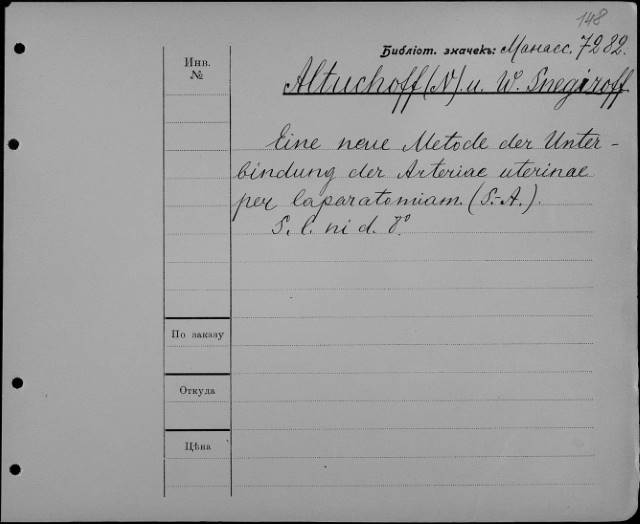 148
Библіот. значекъ: Манасс. 7282.
Инв.
№
Altuchoff (N). u. W. Snegiroff
Eine neue Metode der Unter-
bindung der Arteriae uterinae
per laparatomiam. (S.-A.).
S. l. ni d. 8°
По заказу
Откуда
Цѣна